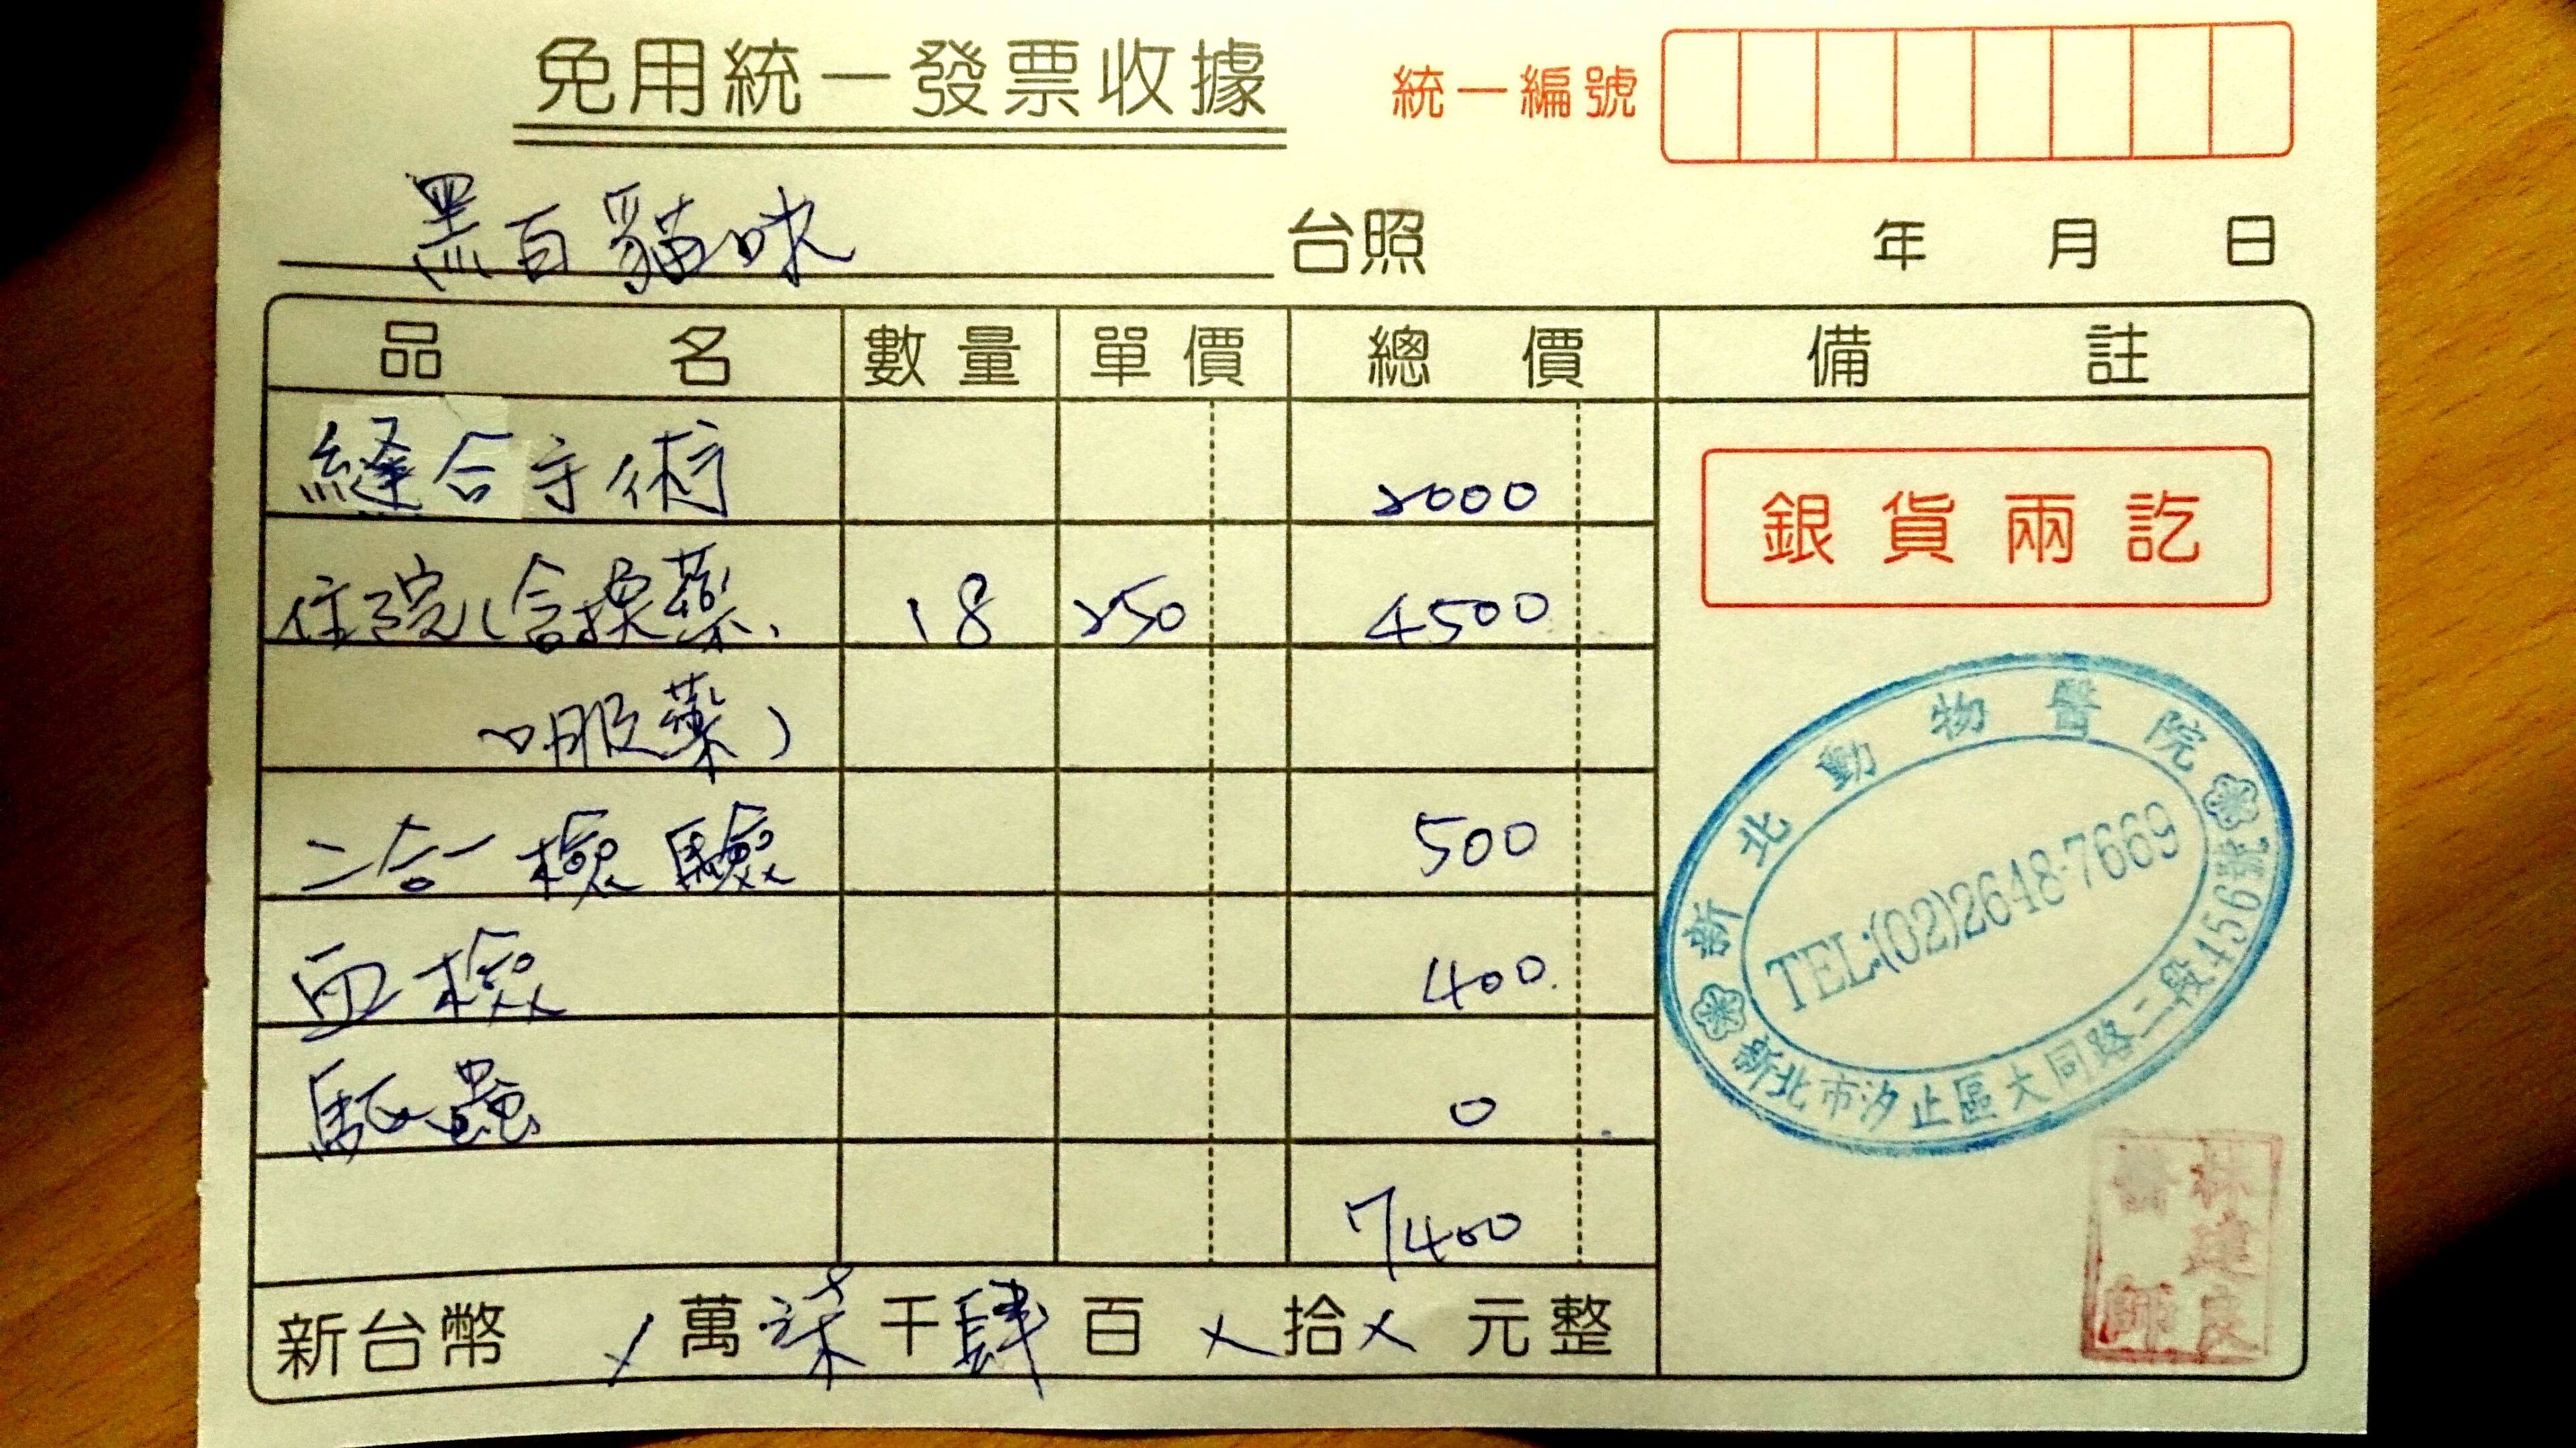 免用統一發票收據
統一編號
黑白貓咪 台照
年 月 日
品名 數量 單價 總價 備註
縫合手術 2000
住院(含換藥、 18 250 4500
口服藥)
二合一檢驗 500
血檢 400
驅蟲 0
7400
新台幣 / 萬 柒 千 肆 百 X 拾 X 元整
銀貨兩訖
新北動物醫院
TEL:(02)2648-7669
新北市汐止區大同路二段456號
林建良
師